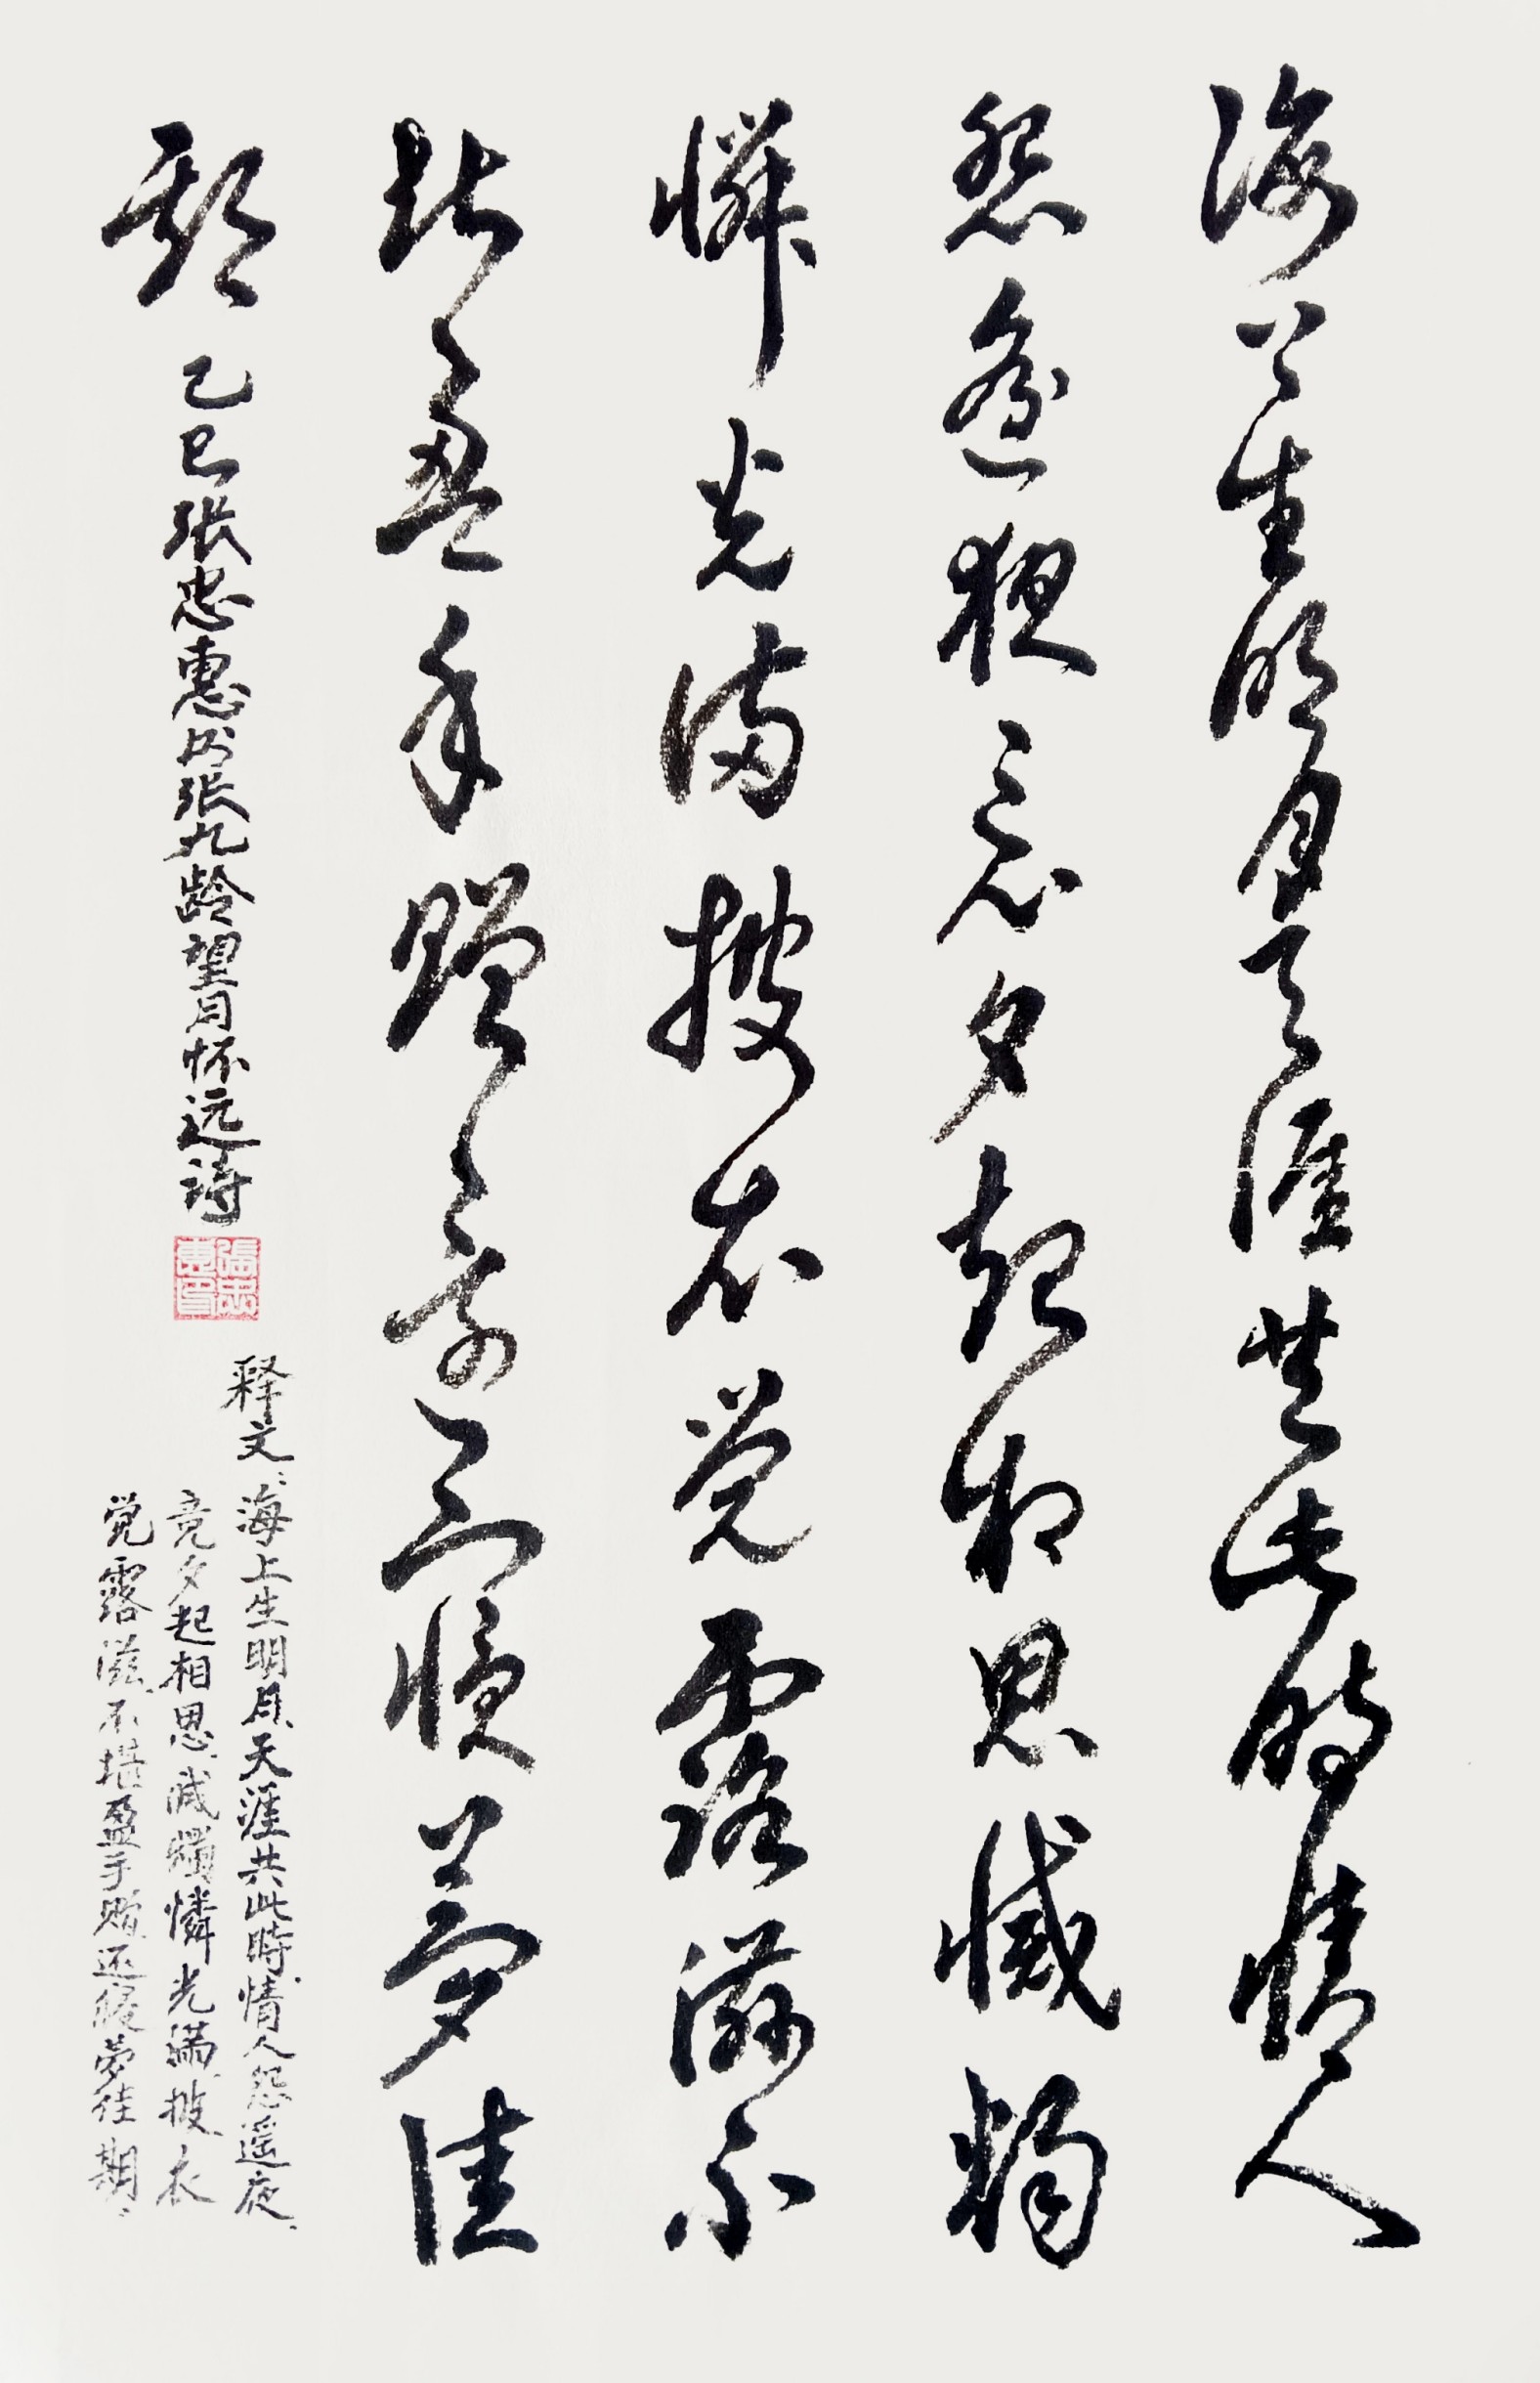 海上生明月天涯共此時情人
怨遥夜竟夕起相思滅燭
憐光满披衣觉露滋不
堪盈手赠还寝梦佳
期
乙巳张忠惠书张九龄望月怀远诗
張忠惠印
释文：海上生明月、天涯共此時、情人怨遥夜、
竟夕起相思、滅燭憐光满、披衣
觉露滋、不堪盈手赠、还寝梦佳期、